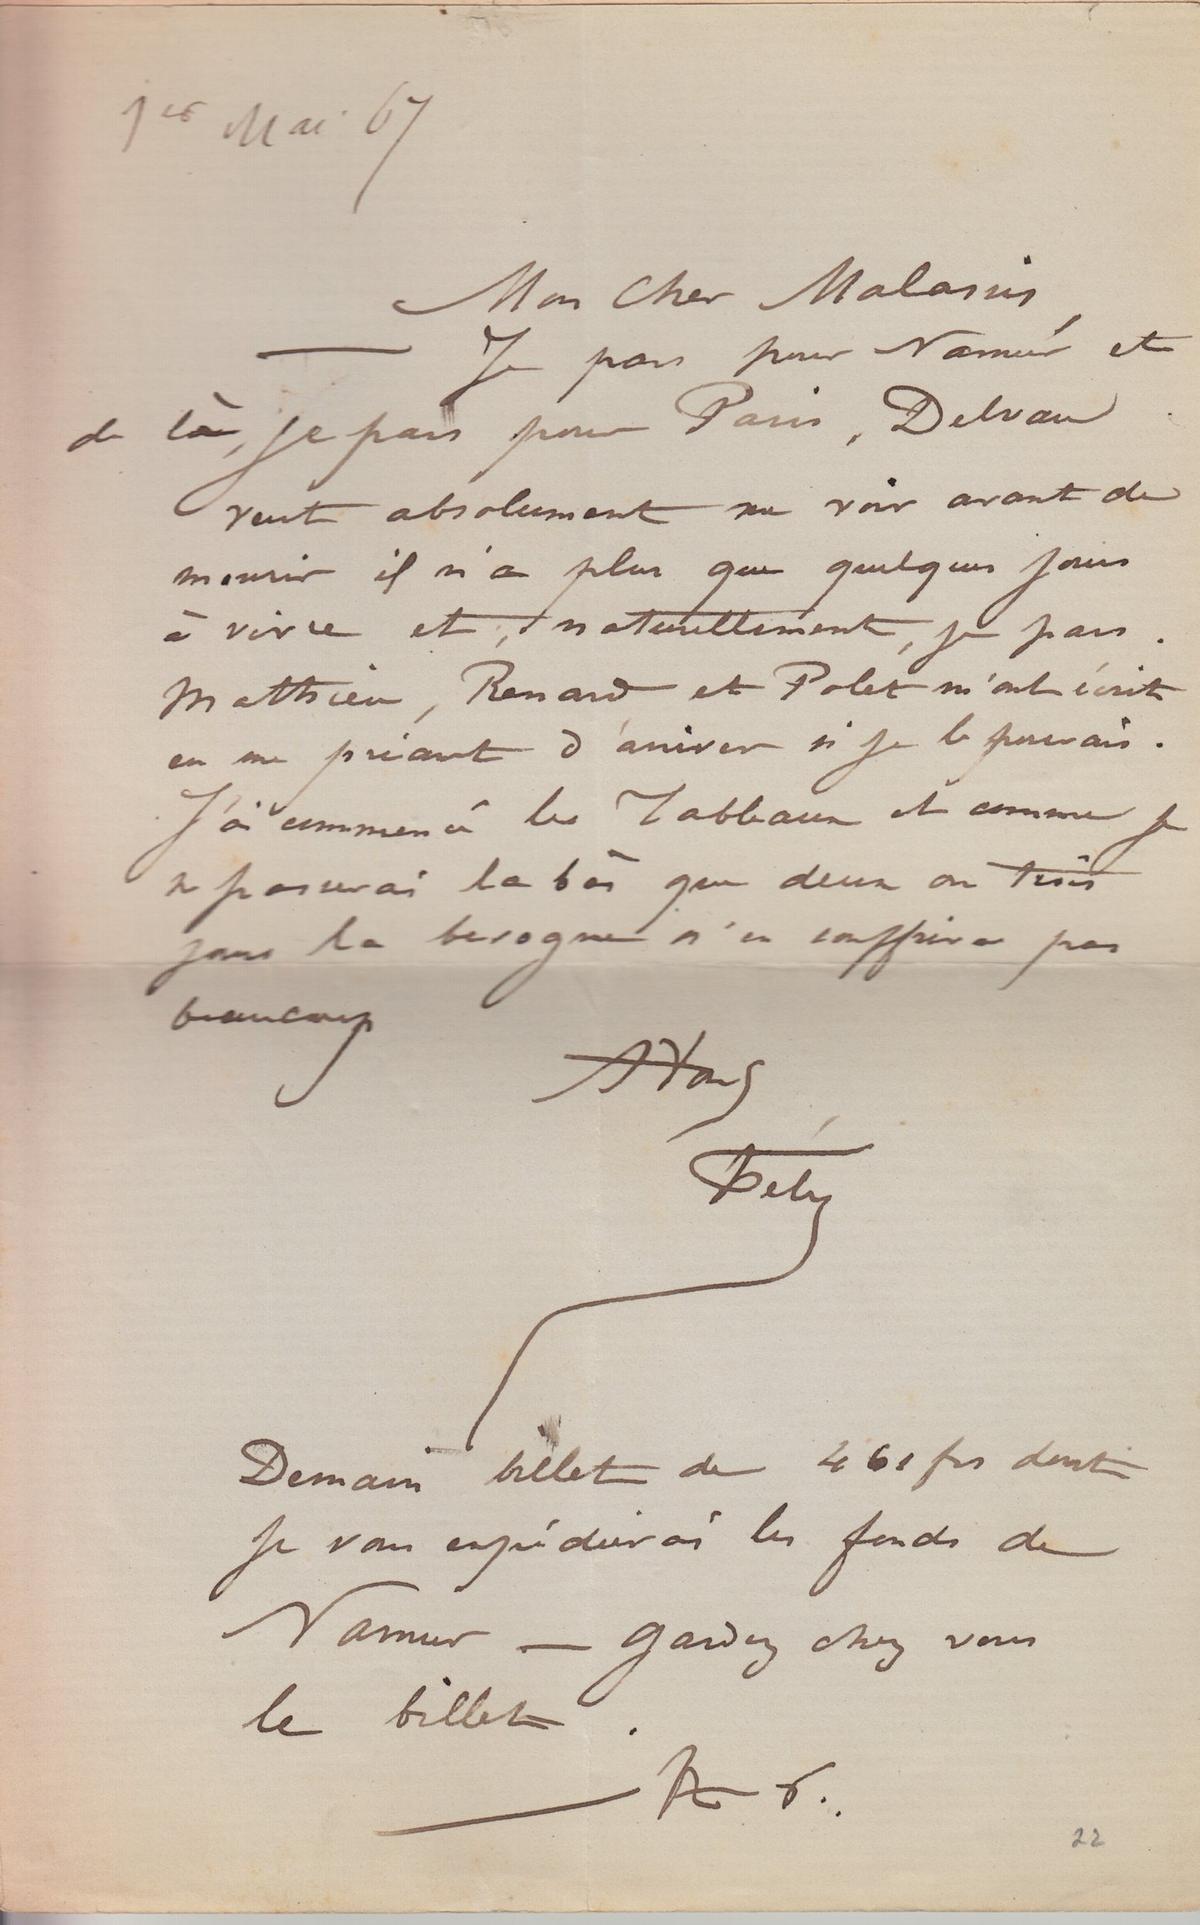 1er Mai 67
Mon Cher Malassis,
Je pars pour Namur et
de là, je pars pour Paris, Delvau
veut absolument me voir avant de
mourir il n'a plus que quelques jours
à vivre et, naturellement, je pars.
Mathieu, Renard et Polet m'ont écrit
en me priant d'arriver si je le pouvais.
J'ai commencé les Tableaux et comme je
ne passerai là bàs que deux ou trois
jours la besogne n'en souffrira pas
beaucoup
A Vous
Fély
Demain billet de 461 frs dont
je vous expédierai les fonds de
Namur — gardez chez vous
le billet.
22